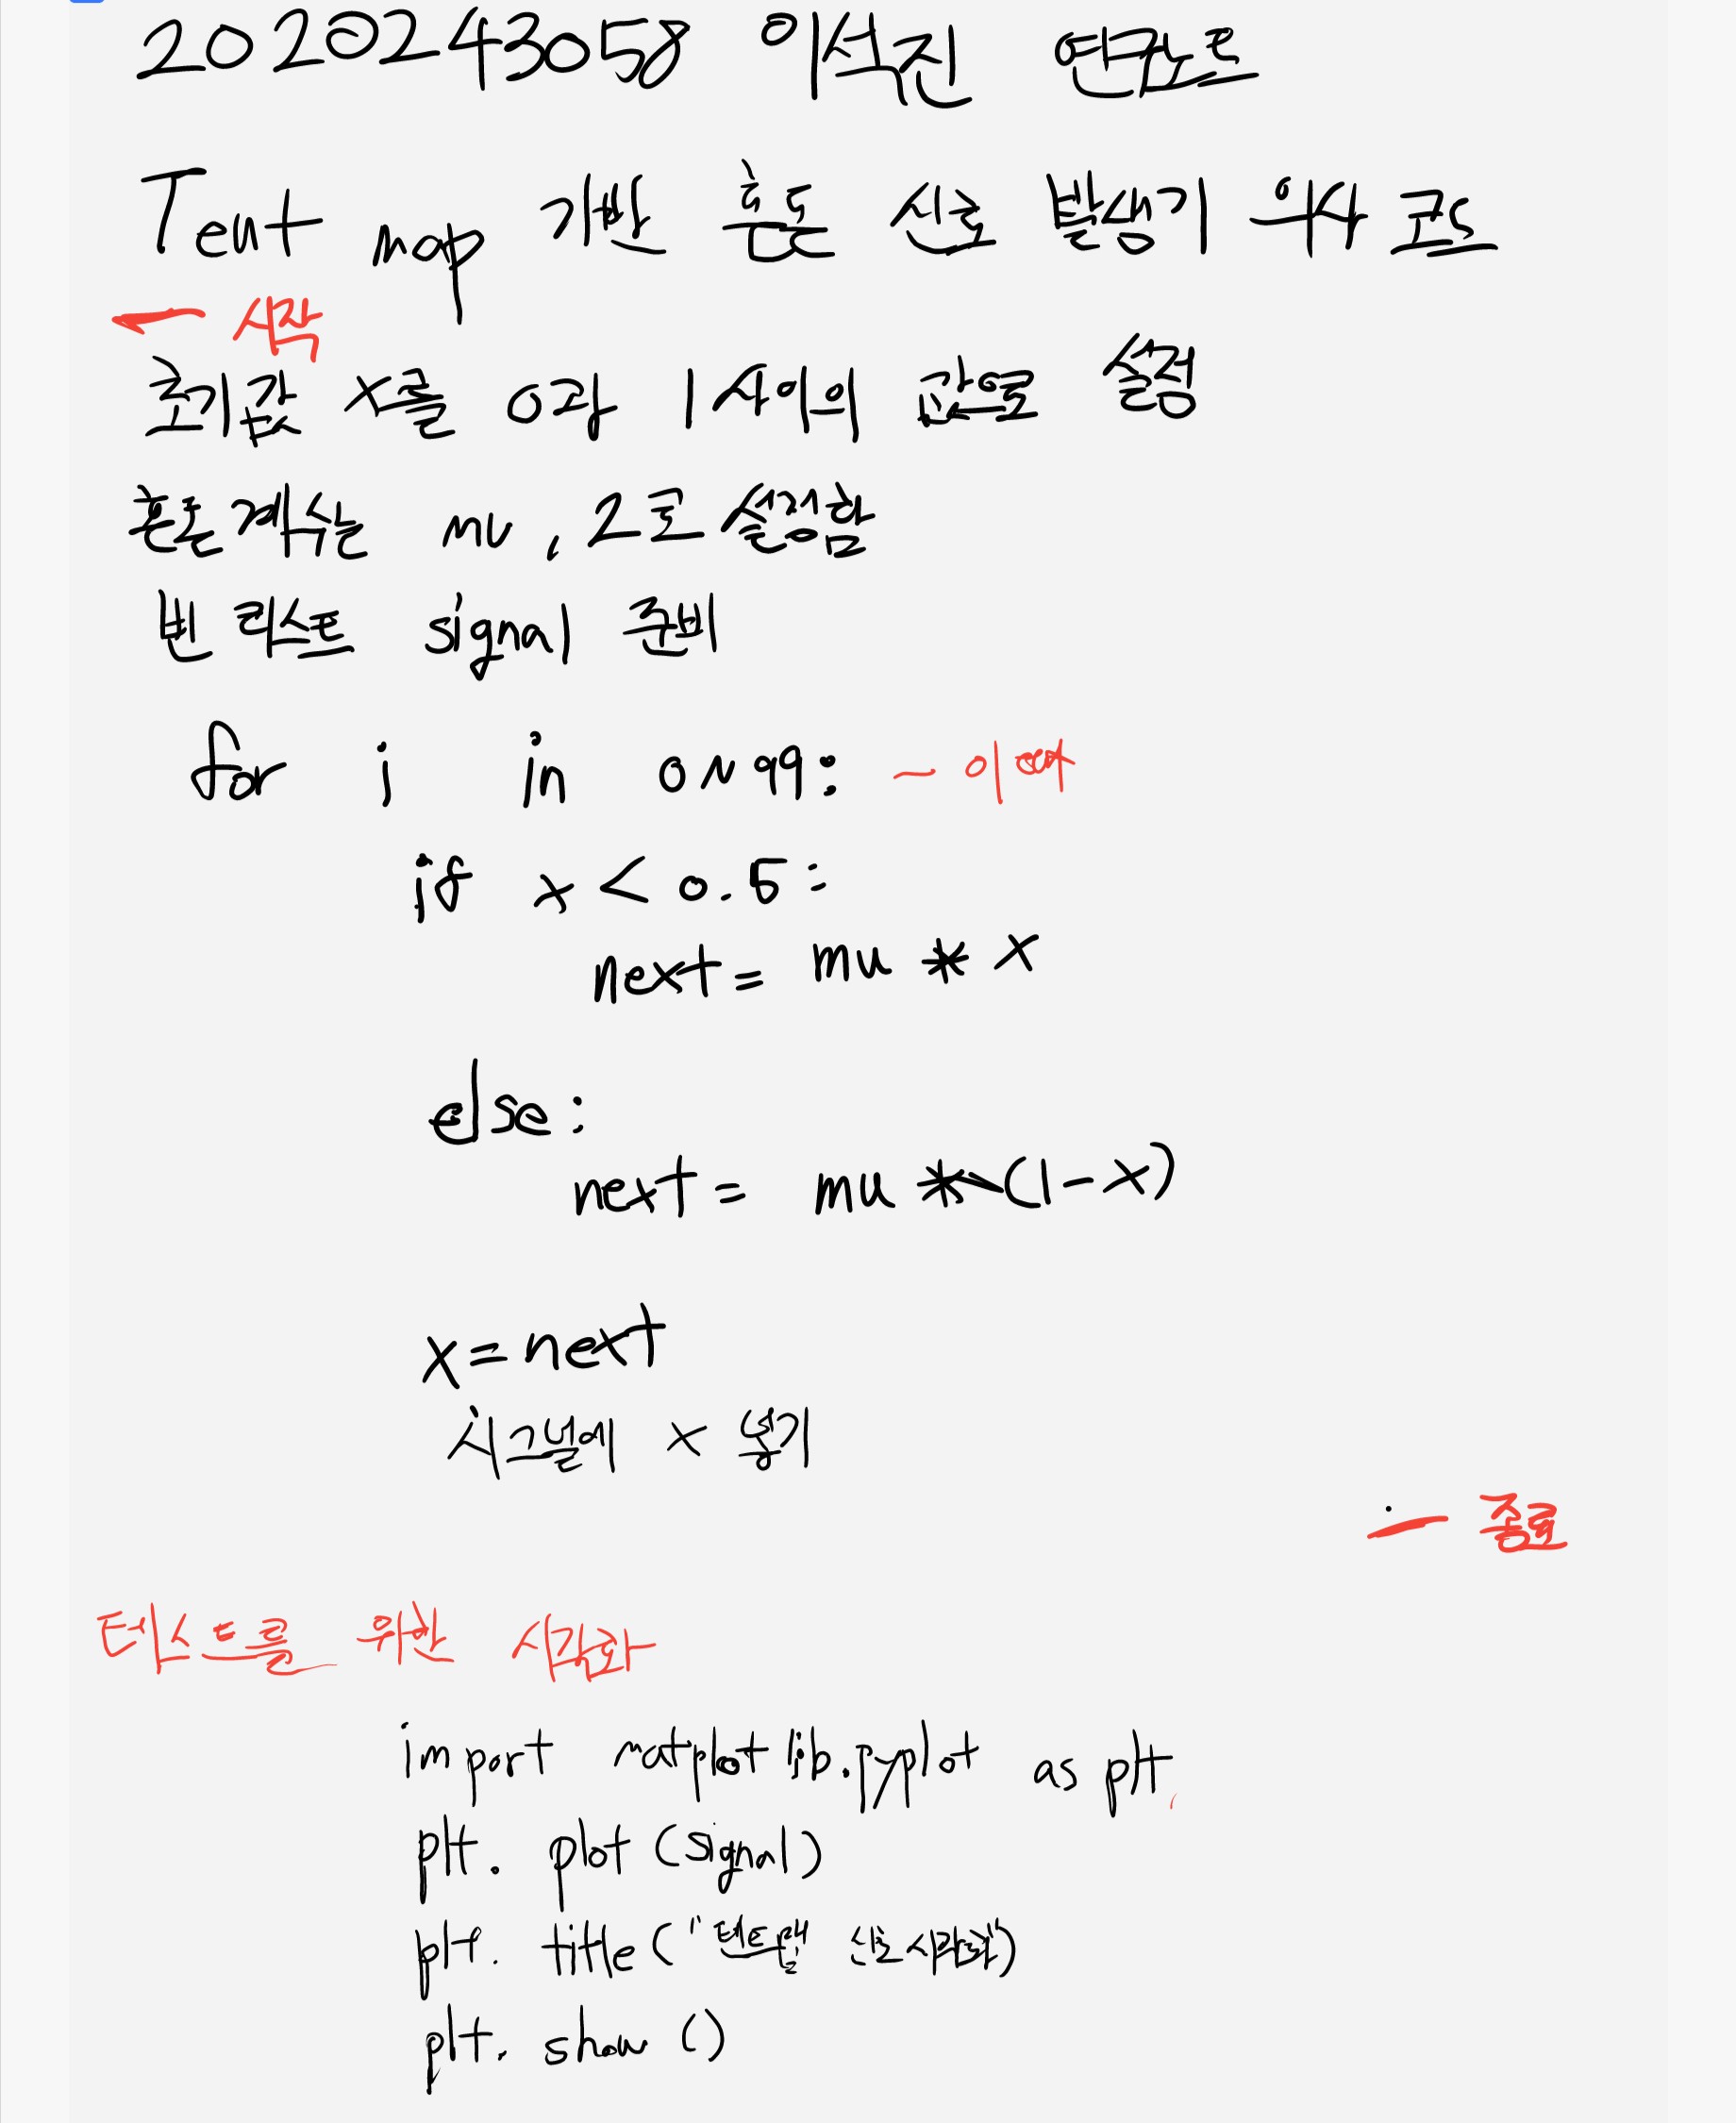 2020243058 이석진 연습문
Tent map 기반 혼돈 신호 발생기 의사 코드
— 시작
초기값 x를 0과 1 사이의 값으로 설정
혼돈 계수는 mu, 2로 설정함
빈 리스트 signal 준비
for i in 0~99: — 이여
if x < 0.5:
next = mu * x
else:
next = mu * (1-x)
x = next
시그널에 x 넣기
— 종료
테스트를 위한 시각화
import matplotlib.pyplot as plt
plt. plot (signal)
plt. title ("텐트맵 신호 시각화")
plt. show ()